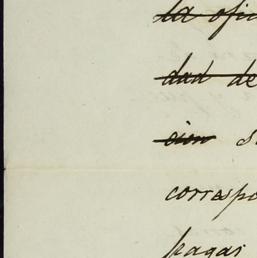 la ofi
dad de
cion s
correspo
pagas